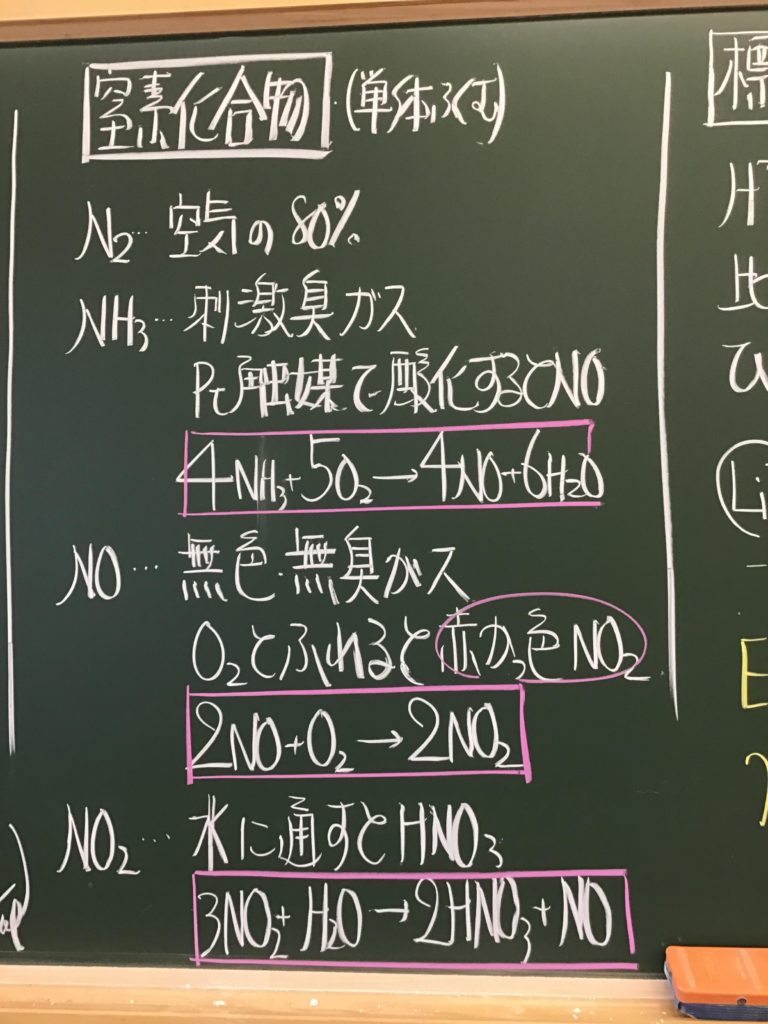 窒素化合物 (単体ふくむ)
N₂… 空気の80%
NH₃… 刺激臭ガス
Pt触媒で酸化するとNO
4NH₃+5O₂→4NO+6H₂O
NO… 無色・無臭ガス
O₂とふれると赤かっ色NO₂
2NO+O₂→2NO₂
NO₂… 水に通すとHNO₃
3NO₂+H₂O→2HNO₃+NO
標
比
ひ
Li
E